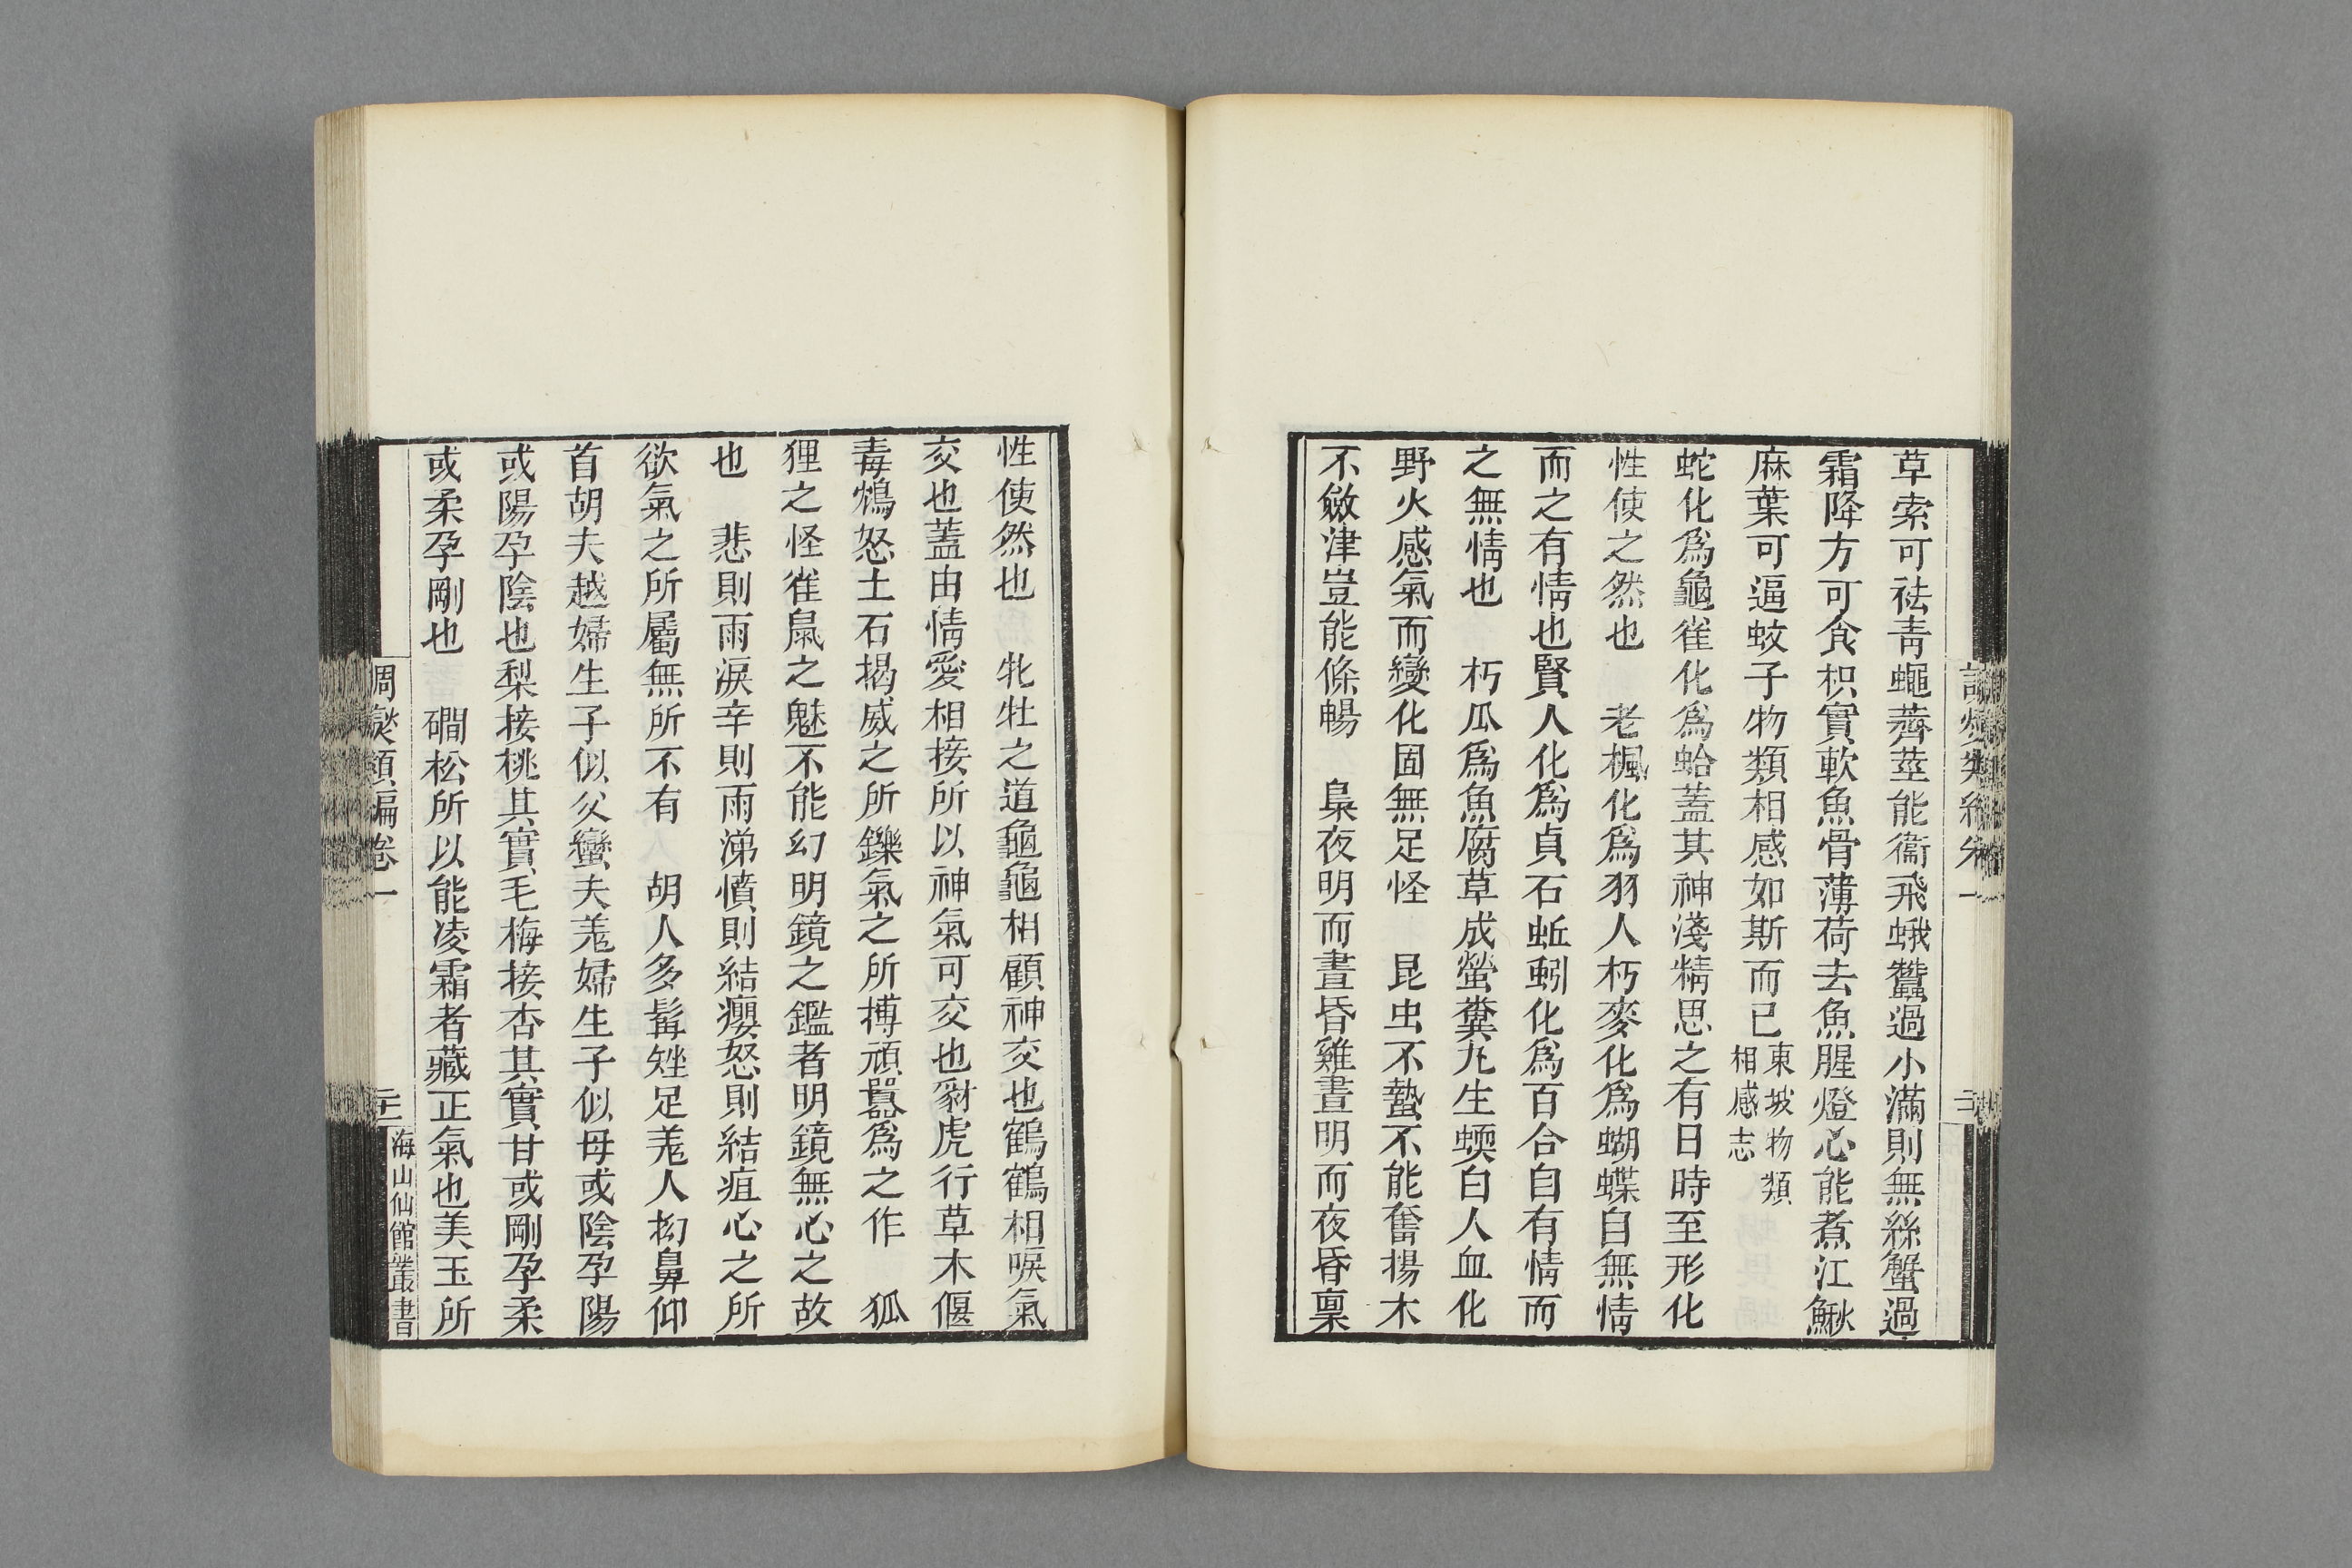 草索可祛青蠅薺莖能衞飛蛾蠶過小滿則無絲蟹過
霜降方可食枳實軟魚骨薄荷去魚腥燈心能煮江鰍
麻葉可逼蚊子物類相感如斯而已東坡物類
相感志
蛇化爲龜雀化爲蛤蓋其神淺精思之有日時至形化
性使之然也　老楓化爲羽人朽麥化爲蝴蝶自無情
而之有情也賢人化爲貞石蚯蚓化爲百合自有情而
之無情也　朽瓜爲魚腐草成螢糞丸生蝡白人血化
野火感氣而變化固無足怪　昆虫不蟄不能奮揚木
不斂津豈能條暢　梟夜明而晝昏雞晝明而夜昏稟
性使然也　牝牡之道龜龜相顧神交也鶴鶴相唳氣
交也蓋由情愛相接所以神氣可交也豺虎行草木偃
毒鴆怒土石揭威之所鑠氣之所搏頑嚚爲之作　狐
狸之怪雀鼠之魅不能幻明鏡之鑑者明鏡無心之故
也　悲則雨淚辛則雨涕憤則結癭怒則結疽心之所
欲氣之所屬無所不有　胡人多髯矬足羗人拗鼻仰
首胡夫越婦生子似父蠻夫羗婦生子似母或陰孕陽
或陽孕陰也梨接桃其實毛梅接杏其實甘或剛孕柔
或柔孕剛也　磵松所以能凌霜者藏正氣也美玉所
調爕類編卷一
海山仙館叢書